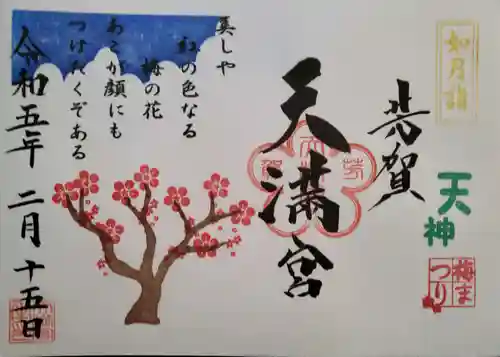 如月詣
芳賀
天神
梅まつり
天満宮
美しや
紅の色なる
梅の花
あこが顔にも
つけたくぞある
令和五年 二月 十五日